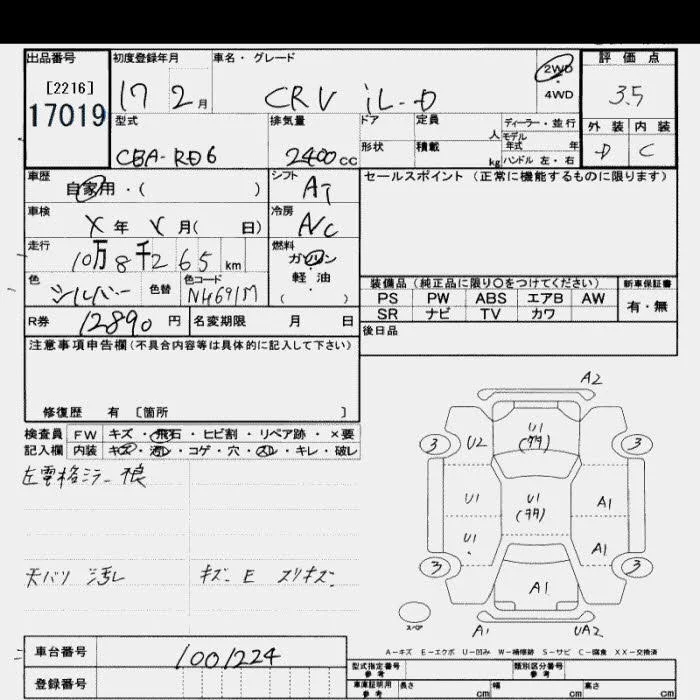 出品番号 初度登録年月 車名・グレード 評価点
[2216]
17019
17 2月 CRV iL-D 2WD 3.5
4WD
型式 排気量 ドア 定員 人 ディーラー・並行 外装 内装
モデル年式 年
CBA-RD6 2400cc 形状 積載 kg ハンドル 左・右 D C
車歴 自家用・( ) シフト AT セールスポイント(正常に機能するものに限ります)
車検 X年 月( 日) 冷房 A/C
走行 10万8千265km 燃料 ガソリン
軽・油
( )
色 シルバー 色替 色コード NH691M
装備品(純正品に限り○をつけてください) 新車保証書
PS PW ABS エアB AW 有・無
SR ナビ TV カワ
R券 12890円 名変期限 月 日 後日品
注意事項申告欄(不具合内容等は具体的に記入して下さい)
修復歴 有 〔箇所 〕
検査員 FW キズ・飛石・ヒビ割・リペア跡・×要
記入欄 内装 キズ・汚レ・コゲ・穴・スレ・キレ・破レ
左電格ミラー
天バリ 汚レ キズ E スリキズ
A2
3 U2 U1 3
U1 U1 A1
U1 A1
3 A1 3
スペア A1 UA2
A-キズ E-エクボ U-凹み W-補修跡 S-サビ C-腐食 XX-交換済
車台番号 1001224
登録番号
型式指定番号 参考 類別区分番号 参考
車庫証明用 参考 長さ cm 幅 cm 高さ cm